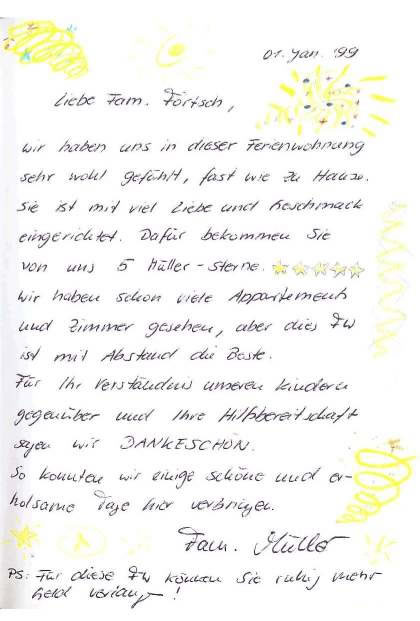 01. Jan. '99
Liebe Fam. Förtsch,
wir haben uns in dieser Ferienwohnung
sehr wohl gefühlt, fast wie zu Hause.
Sie ist mit viel Liebe und Geschmack
eingerichtet. Dafür bekommen Sie
von uns 5 Müller-Sterne. ★★★★★
Wir haben schon viele Appartements
und Zimmer gesehen, aber dies FW
ist mit Abstand die Beste.
Für Ihr Verständnis unseren Kindern
gegenüber und Ihre Hilfsbereitschaft
sagen wir DANKESCHÖN.
So konnten wir einige schöne und er-
holsame Tage hier verbringen.
Fam. Müller
PS: Für diese FW können Sie ruhig mehr
Geld verlangen!